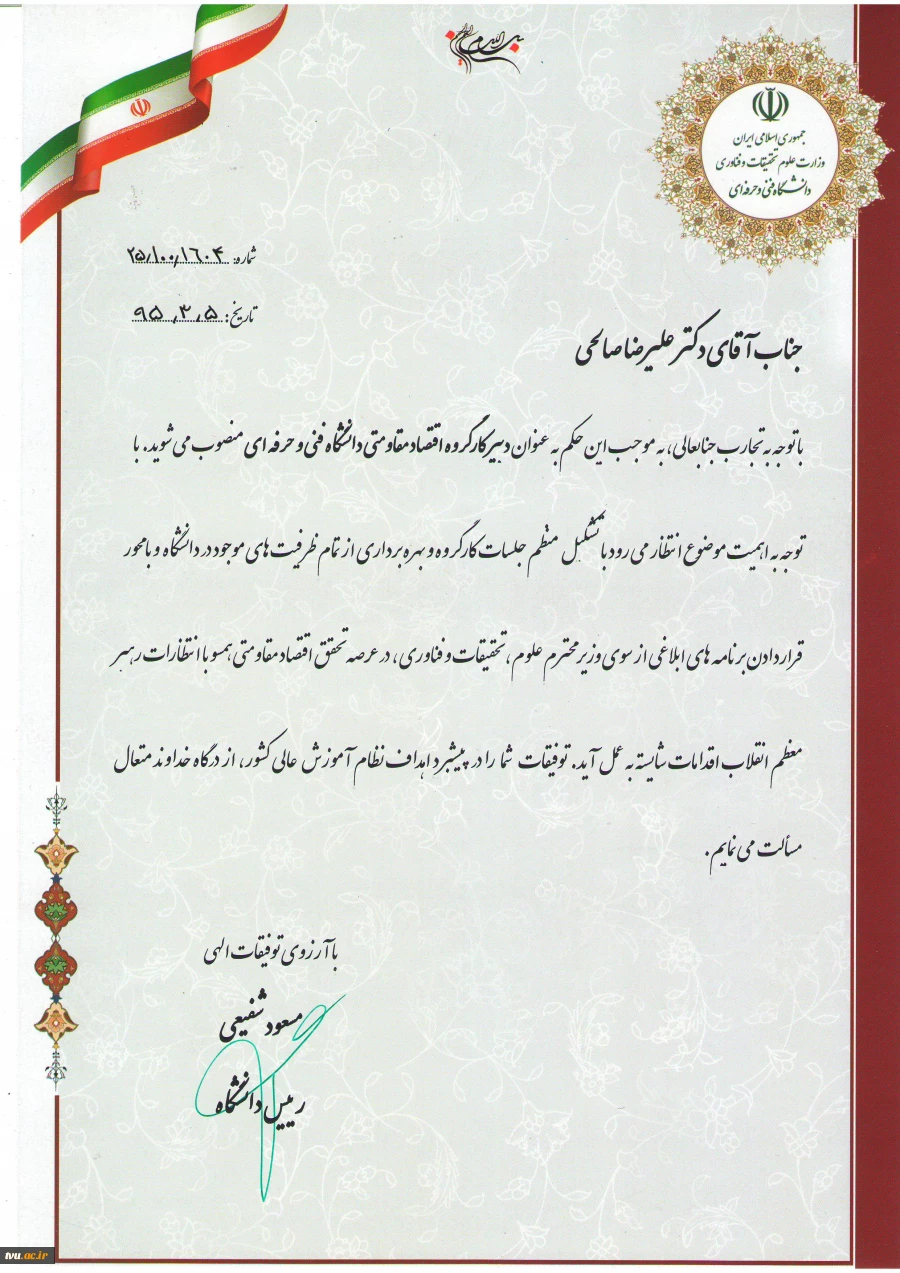 بسم الله الرحمن الرحیم
جمهوری اسلامی ایران
وزارت علوم تحقیقات و فناوری
دانشگاه فنی و حرفه‌ای
شماره: ۲۵/۱۰۰/۱۶۰۴
تاریخ: ۹۵/۳/۵
جناب آقای دکتر علیرضا صالحی
با توجه به تجارب جنابعالی، به موجب این حکم به عنوان دبیر کارگروه اقتصاد مقاومتی دانشگاه فنی و حرفه ای منصوب می شوید. با
توجه به اهمیت موضوع انتظار می رود با تشکیل منظم جلسات کارگروه و بهره برداری از تمام ظرفیت های موجود در دانشگاه و با محور
قرار دادن برنامه های ابلاغی از سوی وزیر محترم علوم، تحقیقات و فناوری، در عرصه تحقق اقتصاد مقاومتی همسو با انتظارات رهبر
معظم انقلاب اقدامات شایسته به عمل آید. توفیقات شما را در پیشبرد اهداف نظام آموزش عالی کشور، از درگاه خداوند متعال
مسألت می نمایم.
با آرزوی توفیقات الهی
مسعود شفیعی
رییس دانشگاه
tvu.ac.ir